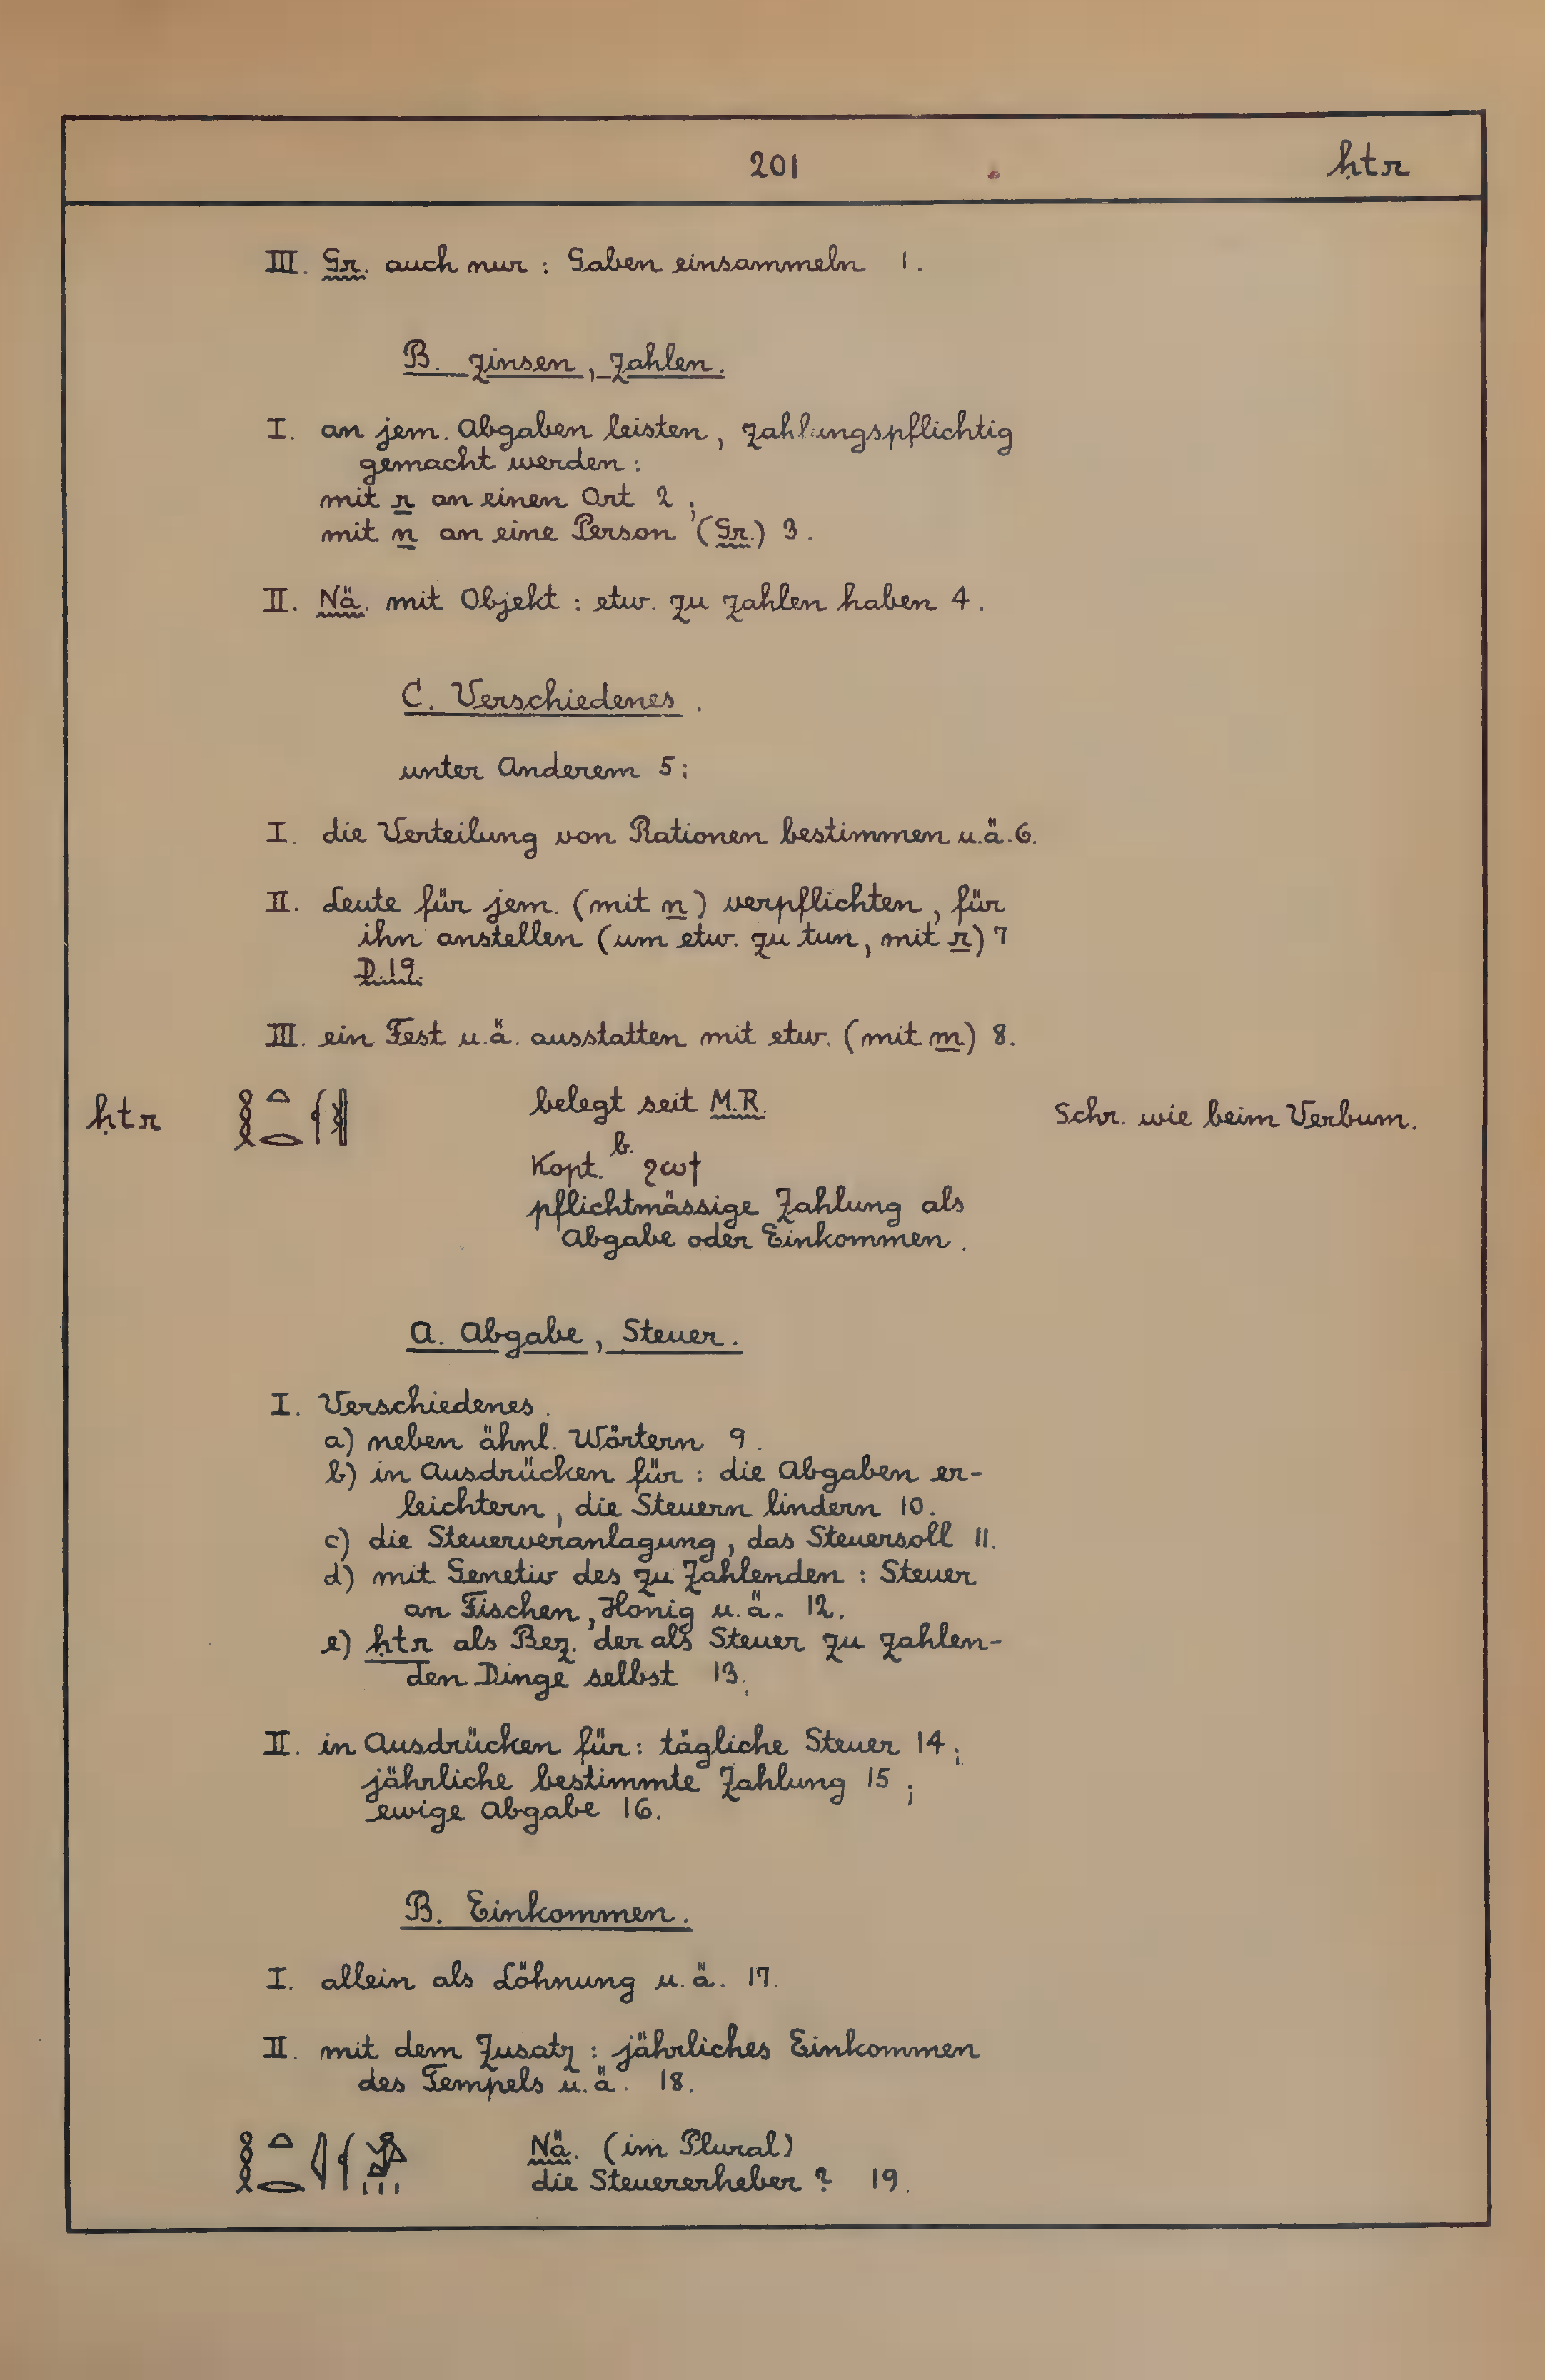 201 ḥtr
III. Gr. auch nur : Gaben einsammeln 1.
B. zinsen, zahlen.
I. an jem. Abgaben leisten, zahlungspflichtig
gemacht werden :
mit r an einen Ort 2 ;
mit n an eine Person (Gr.) 3.
II. Nä. mit Objekt : etw. zu zahlen haben 4.
C. Verschiedenes.
unter Anderem 5 :
I. die Verteilung von Rationen bestimmen u.ä. 6.
II. Leute für jem. (mit n) verpflichten, für
ihn anstellen (um etw. zu tun, mit r) 7
D. 19.
III. ein Fest u.ä. ausstatten mit etw. (mit m) 8.
ḥtr belegt seit M.R. Schr. wie beim Verbum.
Kopt. b. ϩωϯ
pflichtmässige Zahlung als
Abgabe oder Einkommen.
A. Abgabe, Steuer.
I. Verschiedenes.
a) neben ähnl. Wörtern 9.
b) in Ausdrücken für : die Abgaben er-
leichtern, die Steuern lindern 10.
c) die Steuerveranlagung, das Steuersoll 11.
d) mit Genetiv des zu Zahlenden : Steuer
an Fischen, Honig u.ä. 12.
e) ḥtr als Bez. der als Steuer zu zahlen-
den Dinge selbst 13.
II. in Ausdrücken für : tägliche Steuer 14 ;
jährliche bestimmte Zahlung 15 ;
ewige Abgabe 16.
B. Einkommen.
I. allein als Löhnung u.ä. 17.
II. mit dem Zusatz : jährliches Einkommen
des Tempels u.ä. 18.
Nä. (im Plural)
die Steuererheber ? 19.